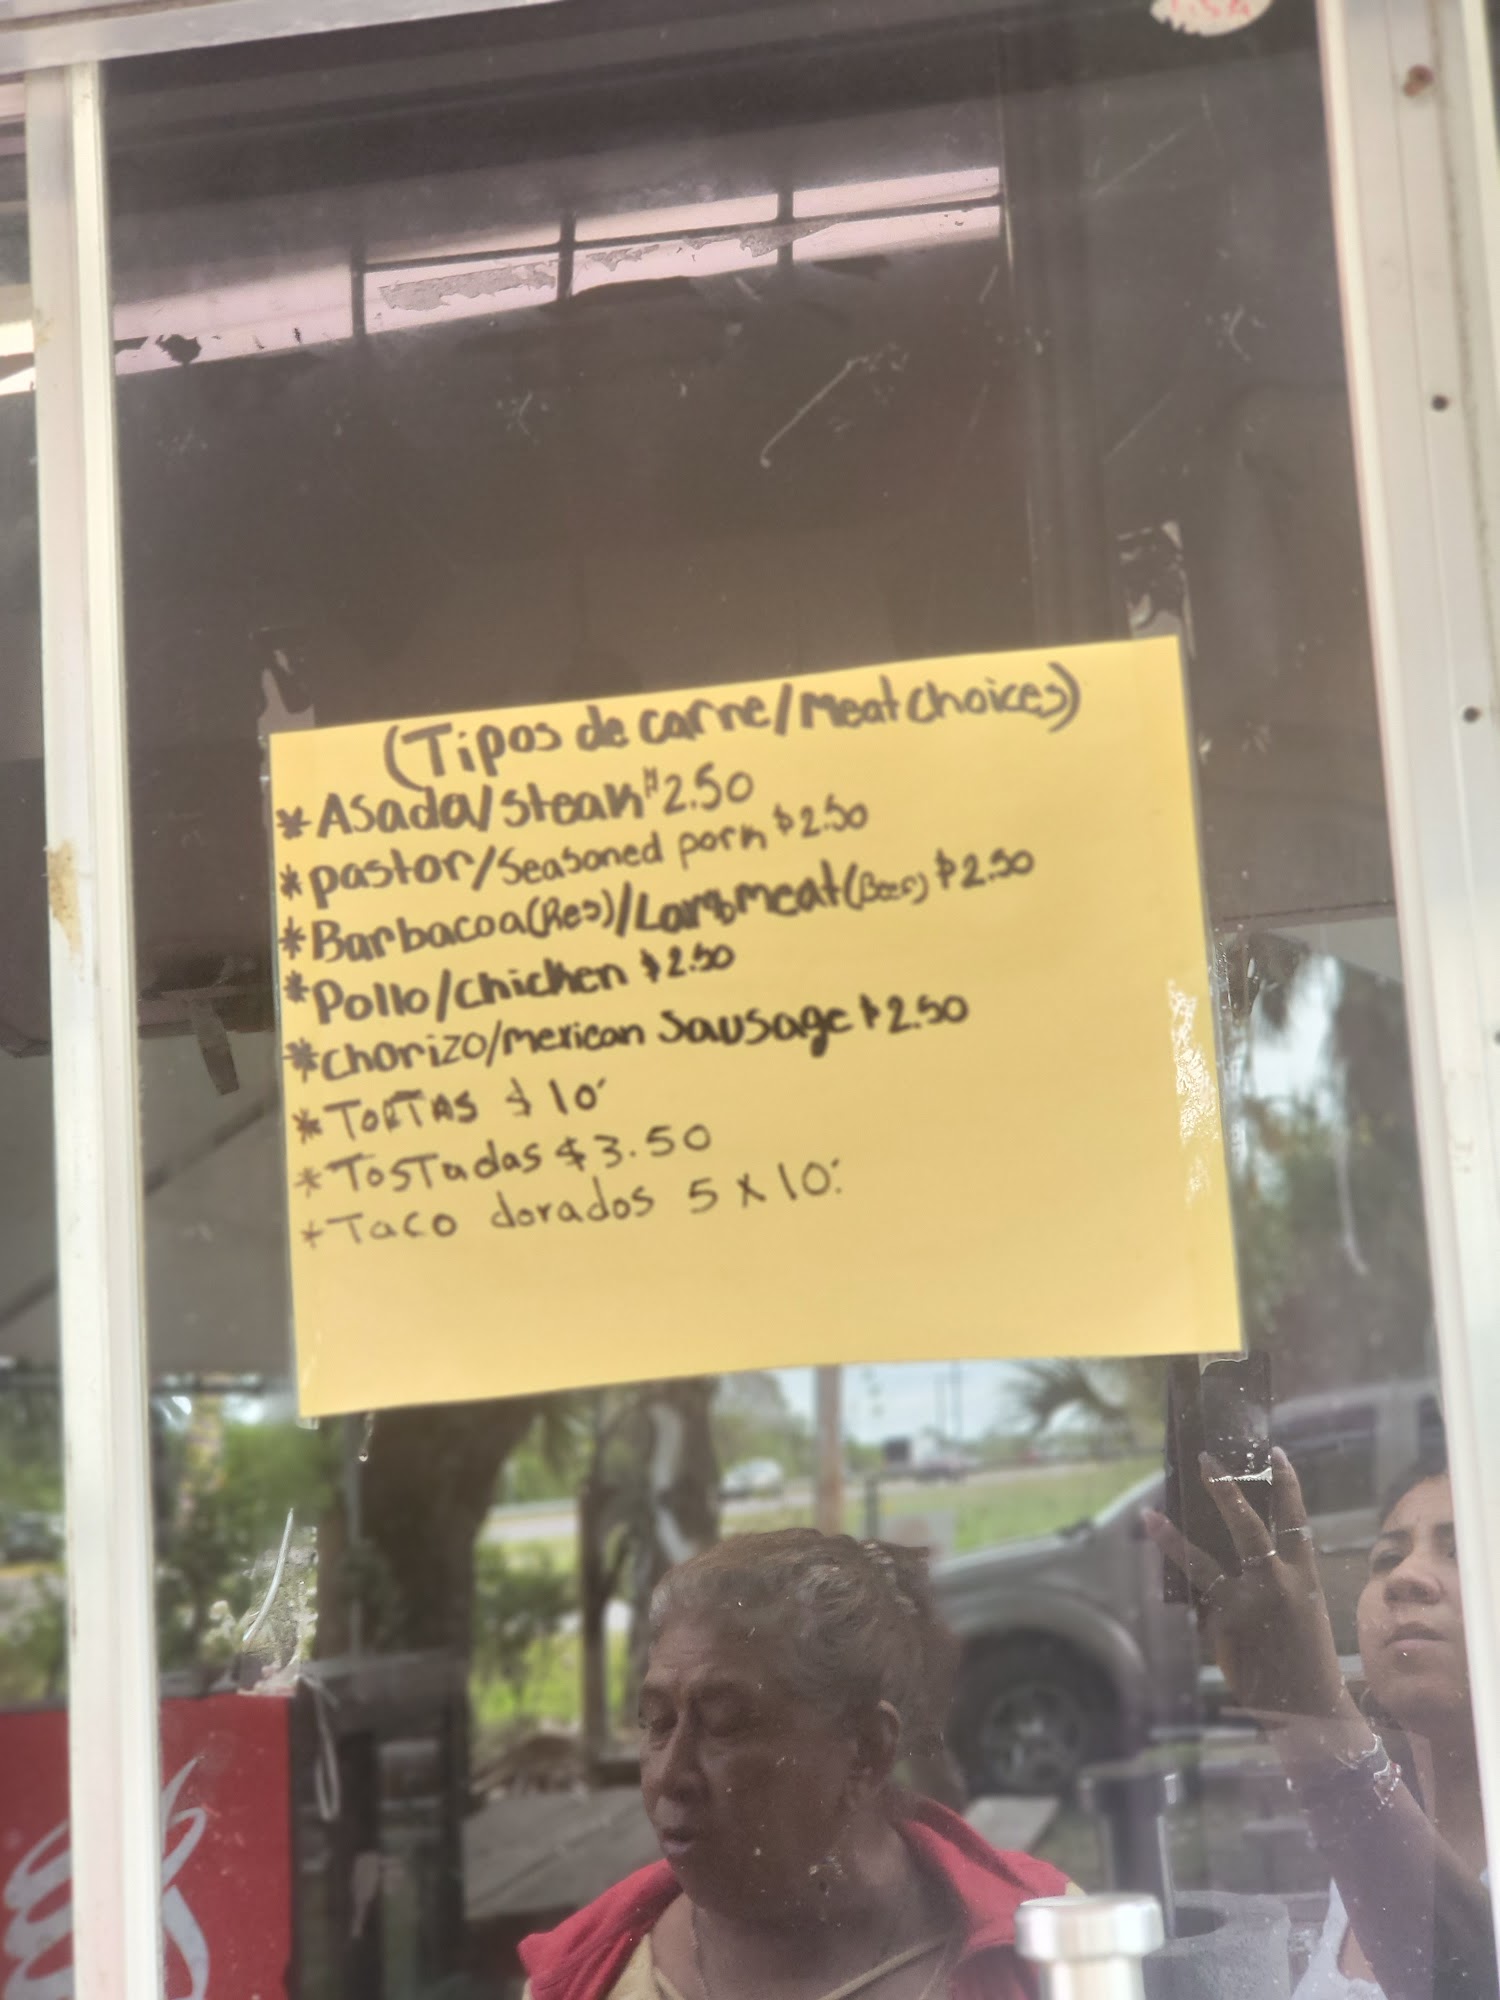 (Tipos de carne/Meat choices)
*Asada/Steak $2.50
*pastor/Seasoned pork $2.50
*Barbacoa(Res)/Lambmeat(Beef) $2.50
*Pollo/Chicken $2.50
*Chorizo/mexican Sausage $2.50
*TORTAS $10
*TosTadas $3.50
*Taco dorados 5 x 10.